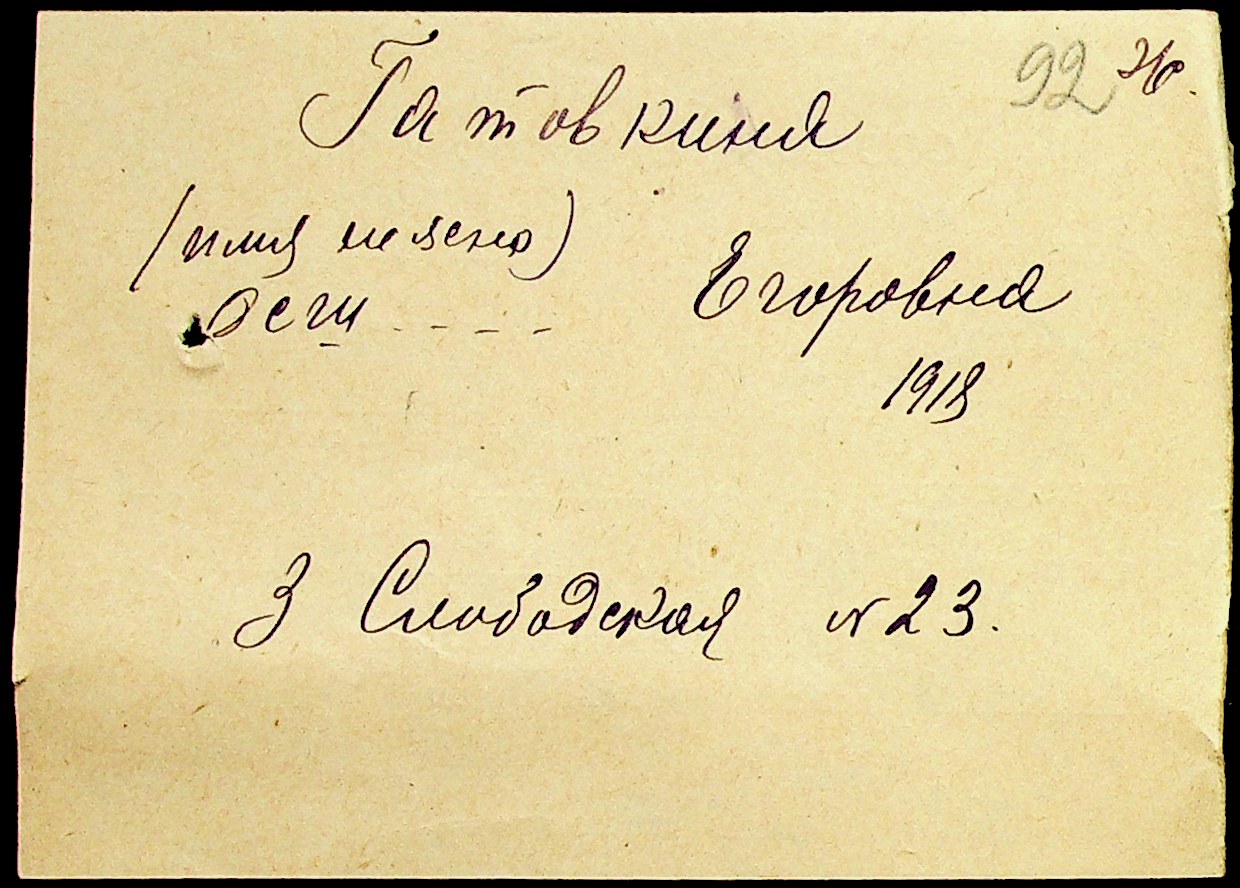 92 Ж.
Гатовкина
(имя неясно)
Егоровна
1918
3 Слободская N 23.